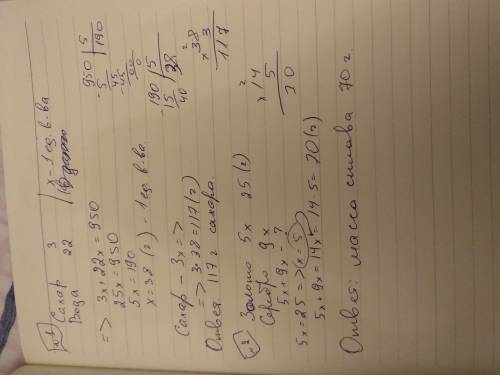 №1
Сахар 3 | x - 1 ед. в-ва
Вода 22
=> 3x + 22x = 950
25x = 950
5x = 190
x = 38 (г) - 1 ед. в-ва.
950 | 5
-5 | 190
45
-45
00
0
190 | 5
-15 | 38
40
Сахар - 3x =>
=> 3·38 = 117 (г)
Ответ 117 г сахара.
2
x 38
3
117
№2
Золото 5x 25 (г)
Серебро 9x
5x + 9x - ?
5x = 25 => (x = 5)
5x + 9x = 14x = 14·5 = 70 (г)
2
x 14
5
70
Ответ: масса сплава 70 г.